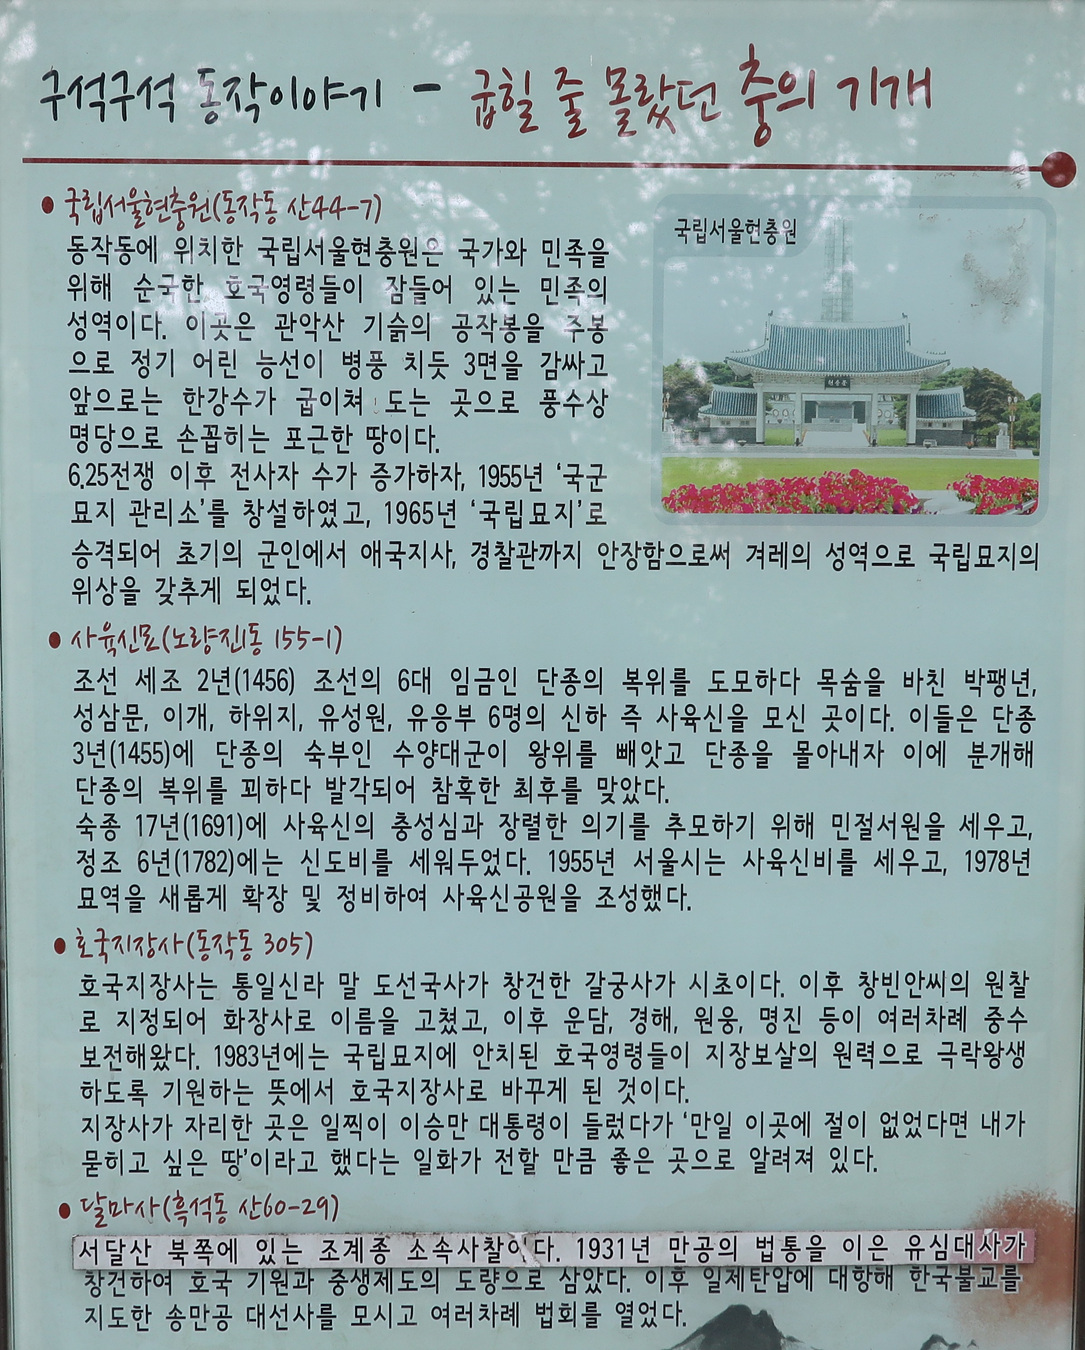 구석구석 동작이야기 - 굽힐 줄 몰랐던 충의 기개
● 국립서울현충원(동작동 산44-7)
동작동에 위치한 국립서울현충원은 국가와 민족을
위해 순국한 호국영령들이 잠들어 있는 민족의
성역이다. 이곳은 관악산 기슭의 공작봉을 주봉
으로 정기 어린 능선이 병풍 치듯 3면을 감싸고
앞으로는 한강수가 굽이쳐 도는 곳으로 풍수상
명당으로 손꼽히는 포근한 땅이다.
6.25전쟁 이후 전사자 수가 증가하자, 1955년 '국군
묘지 관리소'를 창설하였고, 1965년 '국립묘지'로
승격되어 초기의 군인에서 애국지사, 경찰관까지 안장함으로써 겨레의 성역으로 국립묘지의
위상을 갖추게 되었다.
국립서울현충원
현충문
● 사육신묘(노량진1동 155-1)
조선 세조 2년(1456) 조선의 6대 임금인 단종의 복위를 도모하다 목숨을 바친 박팽년,
성삼문, 이개, 하위지, 유성원, 유응부 6명의 신하 즉 사육신을 모신 곳이다. 이들은 단종
3년(1455)에 단종의 숙부인 수양대군이 왕위를 빼앗고 단종을 몰아내자 이에 분개해
단종의 복위를 꾀하다 발각되어 참혹한 최후를 맞았다.
숙종 17년(1691)에 사육신의 충성심과 장렬한 의기를 추모하기 위해 민절서원을 세우고,
정조 6년(1782)에는 신도비를 세워두었다. 1955년 서울시는 사육신비를 세우고, 1978년
묘역을 새롭게 확장 및 정비하여 사육신공원을 조성했다.
● 호국지장사(동작동 305)
호국지장사는 통일신라 말 도선국사가 창건한 갈궁사가 시초이다. 이후 창빈안씨의 원찰
로 지정되어 화장사로 이름을 고쳤고, 이후 운담, 경해, 원웅, 명진 등이 여러차례 중수
보전해왔다. 1983년에는 국립묘지에 안치된 호국영령들이 지장보살의 원력으로 극락왕생
하도록 기원하는 뜻에서 호국지장사로 바꾸게 된 것이다.
지장사가 자리한 곳은 일찍이 이승만 대통령이 들렀다가 '만일 이곳에 절이 없었다면 내가
묻히고 싶은 땅'이라고 했다는 일화가 전할 만큼 좋은 곳으로 알려져 있다.
● 달마사(흑석동 산60-29)
서달산 북쪽에 있는 조계종 소속사찰이다. 1931년 만공의 법통을 이은 유심대사가
창건하여 호국 기원과 중생제도의 도량으로 삼았다. 이후 일제탄압에 대항해 한국불교를
지도한 송만공 대선사를 모시고 여러차례 법회를 열었다.